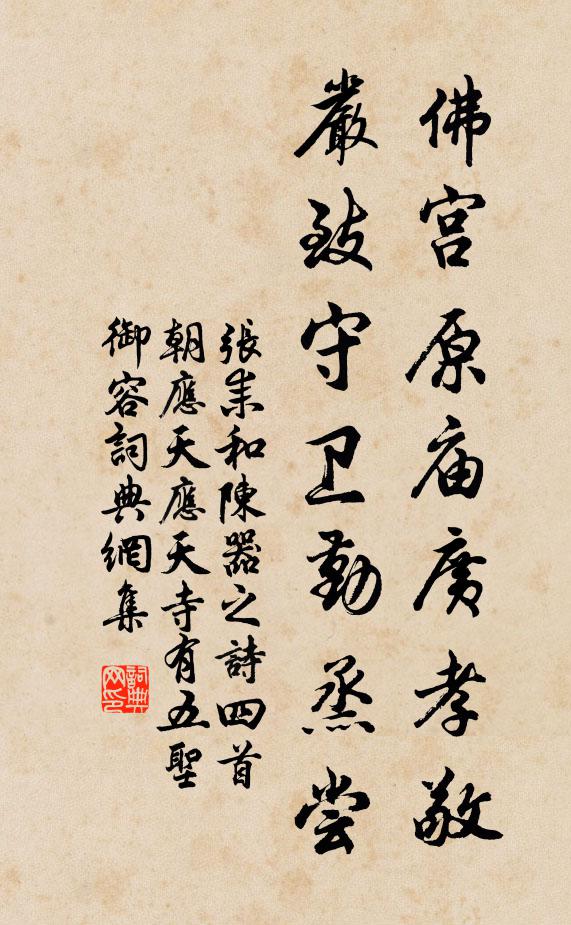 佛宫原庙广孝敬
嚴致守卫勤烝尝
張耒和陳器之詩四首
朝應天應天寺有五聖
御容詞典網集
詞典网印